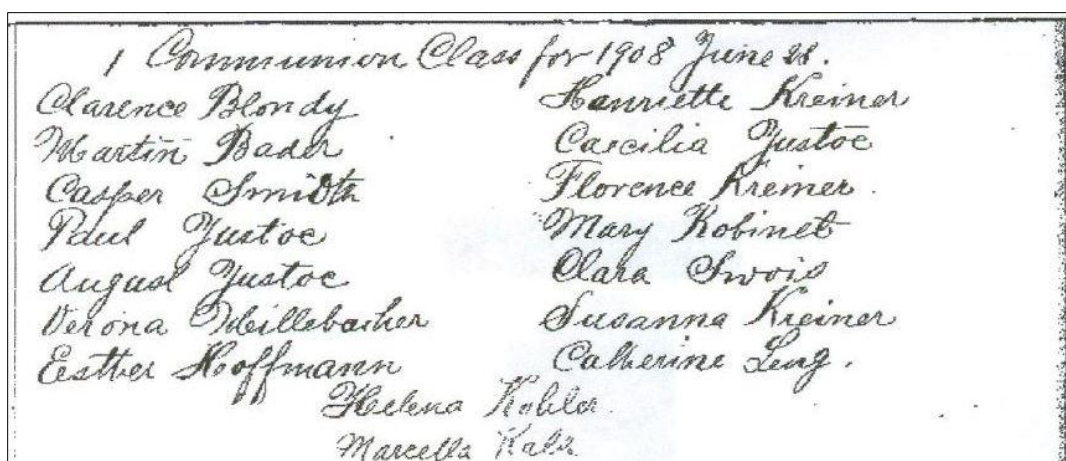 1 Communion Class for 1908 June 28.
Clarence Blondy
Martin Bader
Casper Smidth
Paul Justoe
August Justoe
Verona
Esther Hoffmann
Henriette Kreiner
Caecilia Justoe
Florence Kreiner.
Mary Robinet
Clara
Susanna Kreiner
Catherine
Helena Kobler.
Marcella